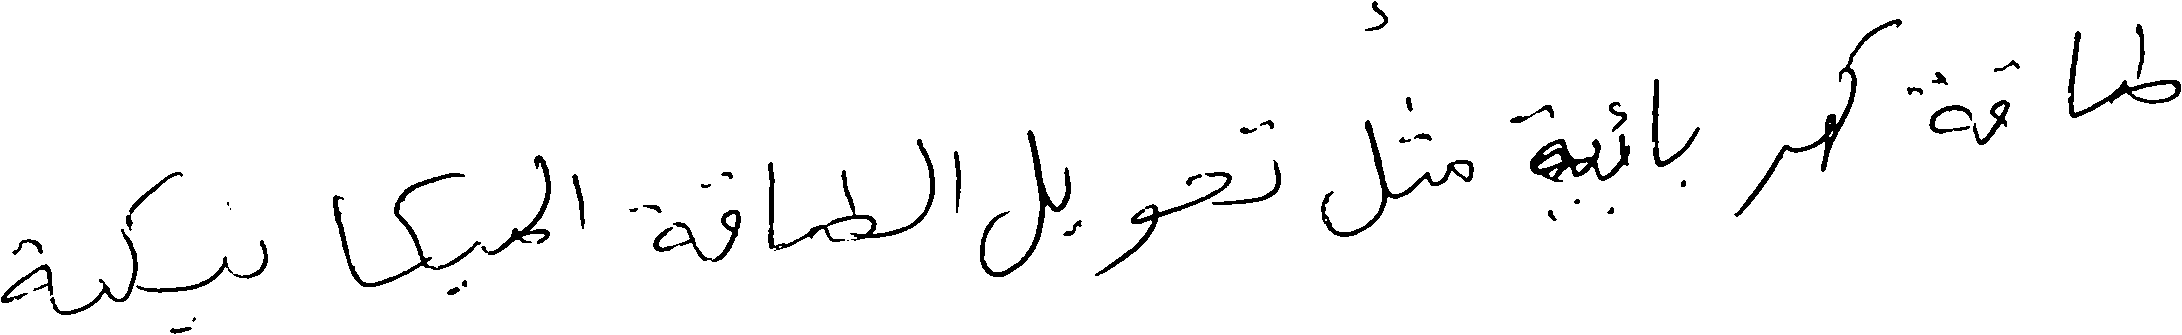 طاقة كهربائية مثل تحويل الطاقة الميكانيكية